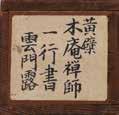 黄檗
木庵禅師
一行書
雲門露